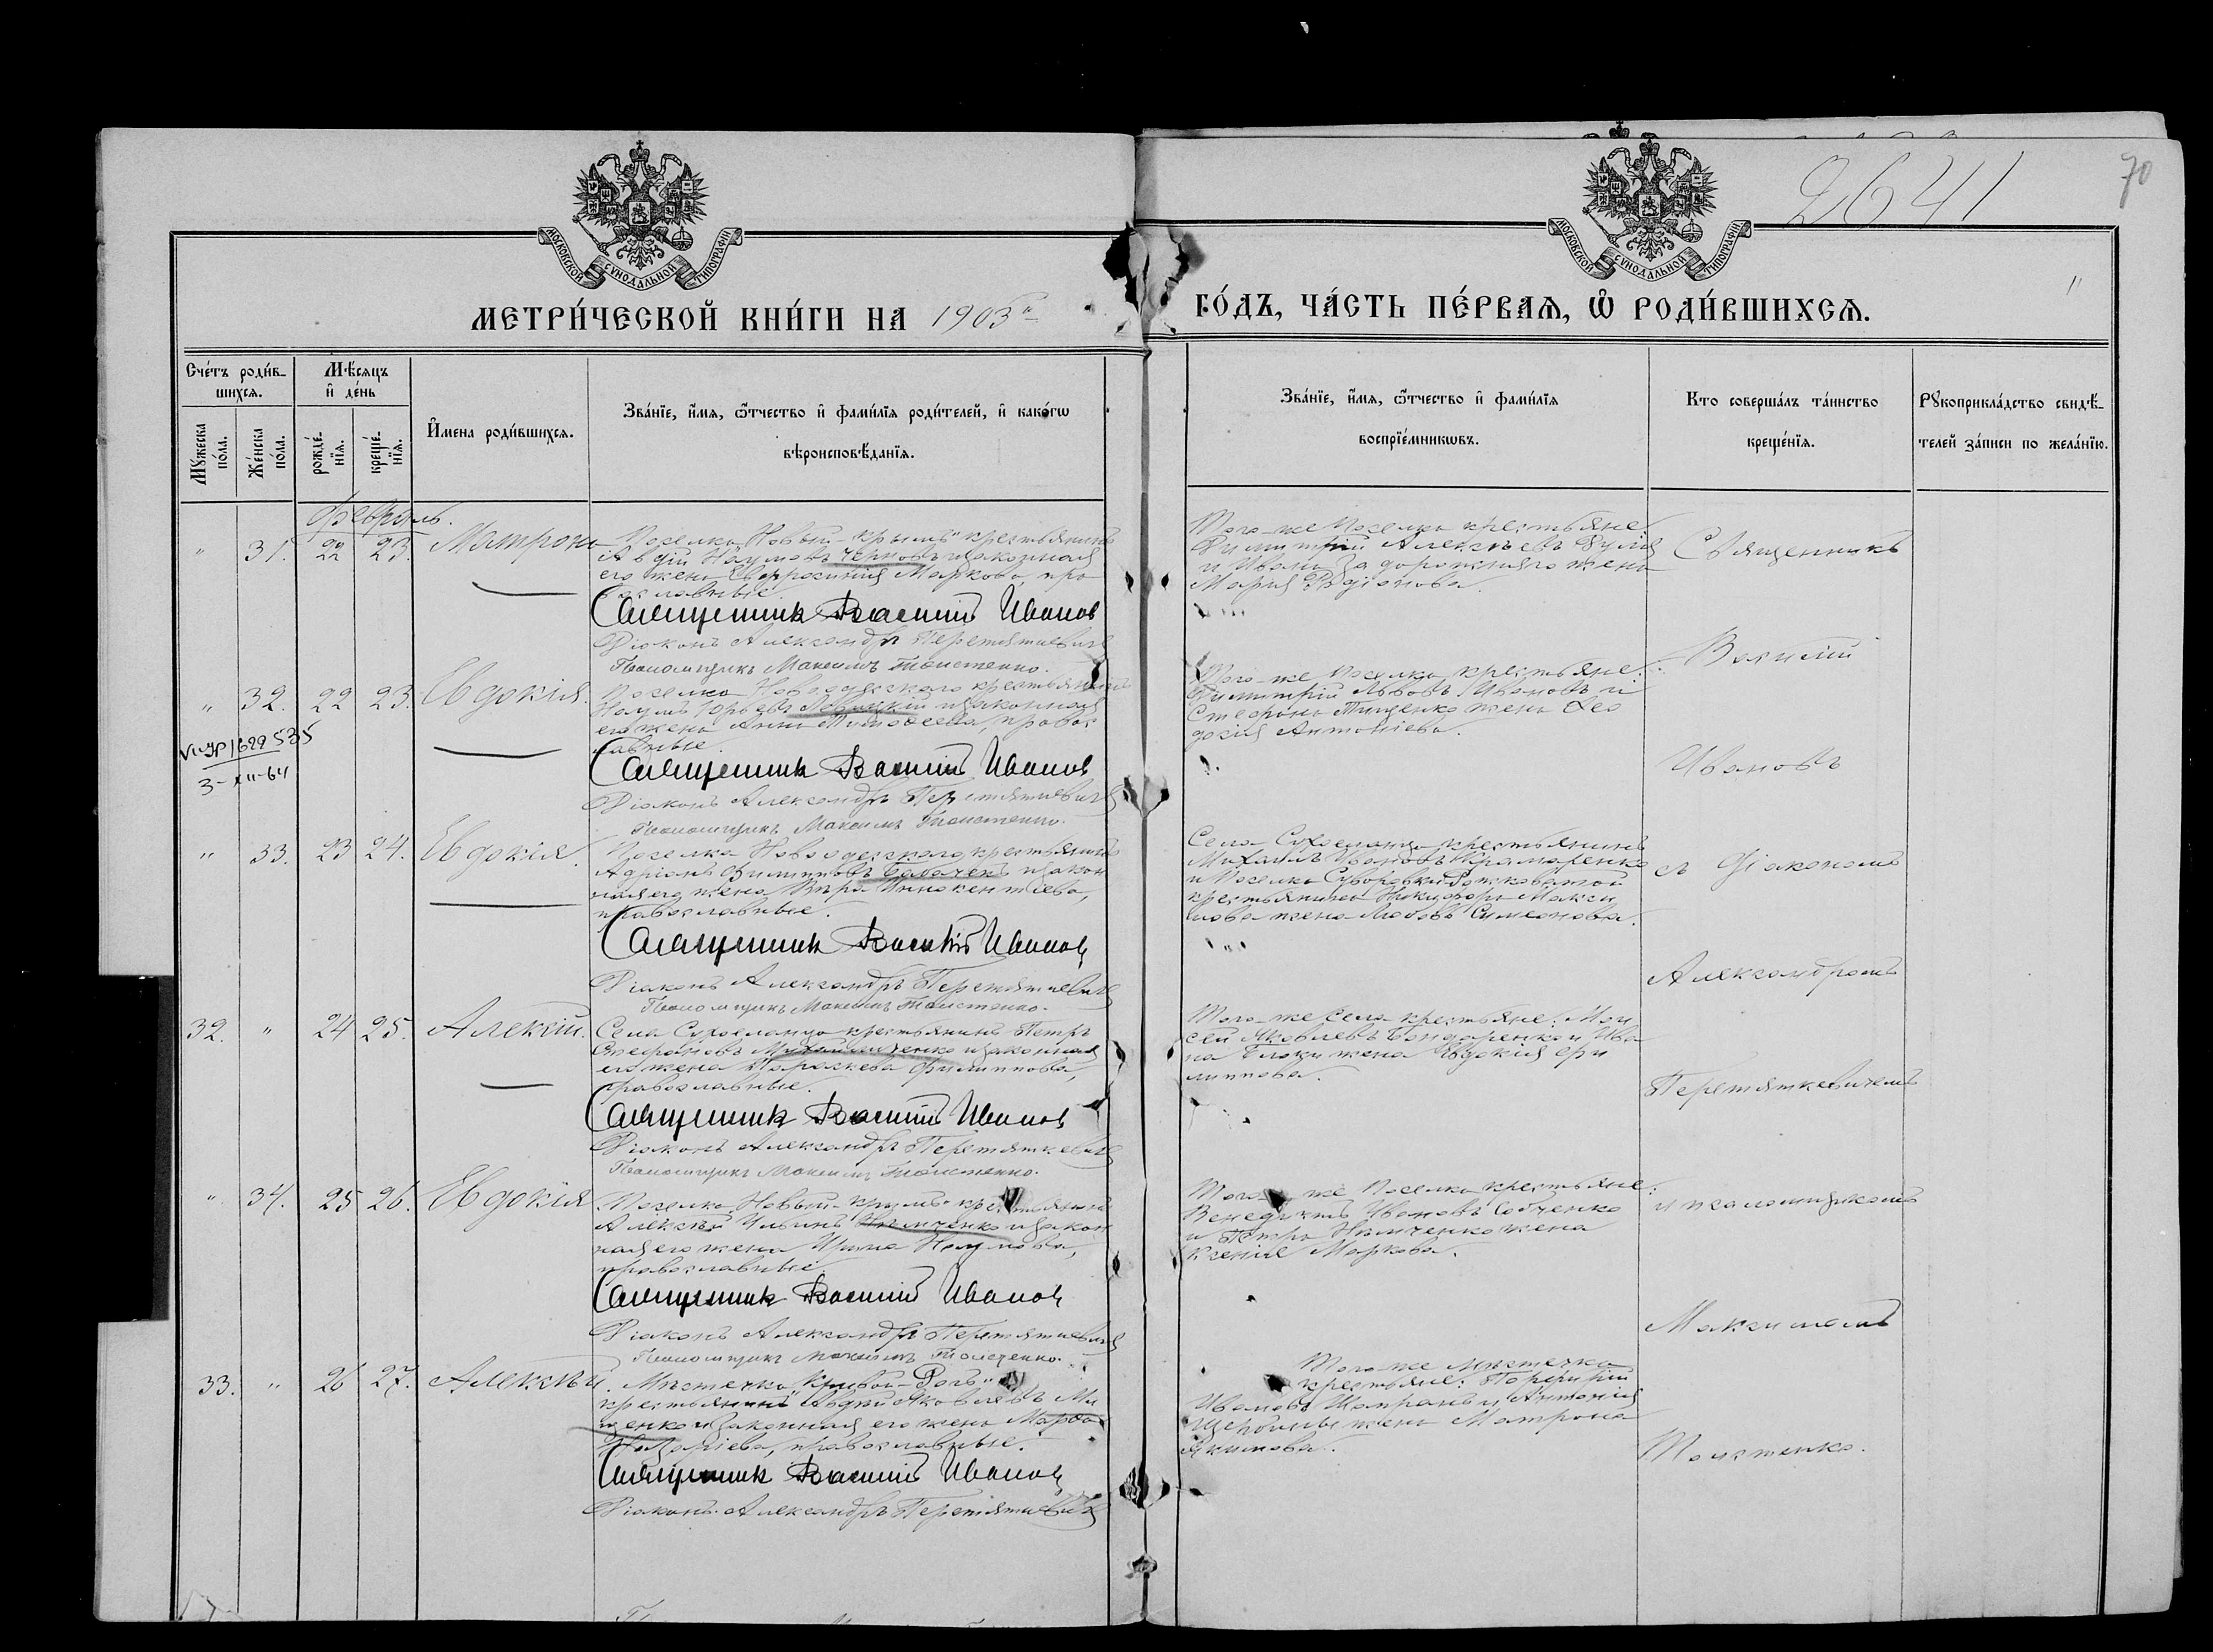 2641
70
МОСКОВСКОЙ СѴНОДАЛЬНОЙ ТИПОГРАФІИ
МОСКОВСКОЙ СѴНОДАЛЬНОЙ ТИПОГРАФІИ
МЕТРИ́ЧЕСКОЙ КНИ́ГИ НА 1903 ГО́ДЪ, ЧА́СТЬ ПЕ́РВАЯ, Ѡ РОДИ́ВШИХСЯ.
Сче́тъ роди́в-
шихся.
Мѣ́сяцъ
и де́нь
Му́жеска по́ла.
Же́нска по́ла.
рожде́-
нїя.
креще́-
нїя.
Имена роди́вшихся.
Зва́нїе, и́мя, ѻ́тчество и фами́лїя роди́телей, и како́гѡ
вѣроисповѣ́данїя.
Зва́нїе, и́мя, ѻ́тчество и фами́лїя
воспрїе́мникѡвъ.
Кто соверша́лъ та́инство
креще́нїя.
Рꙋкоприкла́дство свидѣ́-
телей за́писи по жела́нїю.
Февраль.
" 31. 22 23. Матрона
Поселка Новый-Крымъ крестьянинъ
Авдій Наумовъ Черновъ и законная
его жена Евфросинія Маркова, пра
вославные
Священникъ Василій Ивановъ
Діаконъ Александръ Перетяткевичъ
Псаломщикъ Максимъ Толстенко.
Того-же поселка крестьяне
Димитрій Алексѣевъ
и Ивана Задорожняго жена
Марія Родіонова.
Священникъ
Василій
Ивановъ
съ Діакономъ
Александромъ
Перетяткевичемъ
и псаломщикомъ
Максимомъ
Толстенко.
" 32. 22 23. Евдокія.
Поселка Новоодесскаго крестьянинъ
Наумъ Юрьевъ и законная
его жена Анна Тимофеева, правос
лавные.
Священникъ Василій Ивановъ
Діаконъ Александръ Перетяткевичъ
Псаломщикъ Максимъ Толстенко.
Того-же поселка крестьяне:
Димитрій Львовъ Ивановъ и
Стефана Тищенко жена Фео
досія Антоніева.
1622535
3-XII-64
" 33. 23 24. Евдокія.
Поселка Новоодесскаго крестьянинъ
Адріанъ Филипповъ и закон
ная его жена Вѣра Иннокентіева,
православные.
Священникъ Василій Ивановъ
Діаконъ Александръ Перетяткевичъ
Псаломщикъ Максимъ Толстенко.
Села Сухоеланца крестьянинъ
Михаилъ Ивановъ Крамаренко
и поселка Суворовки
крестьянина Никифора Макси
мова жена Любовь Симеонова.
32. " 24 25. Алексій.
Села Сухоеланца крестьянинъ Петръ
Стефановъ Михайличенко и законная
его жена Параскева Филиппова,
православные.
Священникъ Василій Ивановъ
Діаконъ Александръ Перетяткевичъ
Псаломщикъ Максимъ Толстенко.
Того-же села крестьяне: Мои
сей Яковлевъ Бондаренко и Ива
на жена Евдокія Фи
липпова.
" 34. 25 26. Евдокія
Поселка Новый-Крымъ крестьянинъ
Алексѣй Ильинъ Нѣмченко и закон
ная его жена Ирина Наумова,
православные.
Священникъ Василій Ивановъ
Діаконъ Александръ Перетяткевичъ
Псаломщикъ Максимъ Толстенко.
Того же поселка крестьяне:
Венедиктъ Ивановъ Собченко
и Петра Нѣмченко жена
Ксенія Маркова.
33. " 26 27. Алексѣй.
Мѣстечка Кривой-Рогъ
крестьянинъ Авдій Яковлевъ Ми
щенко и законная его жена Марфа
Назаріева, православные.
Священникъ Василій Ивановъ
Діаконъ Александръ Перетяткевичъ
Того же мѣстечка
крестьяне: Порфирій
Ивановъ и Антонія
Щербины жена Матрона
Якимова.